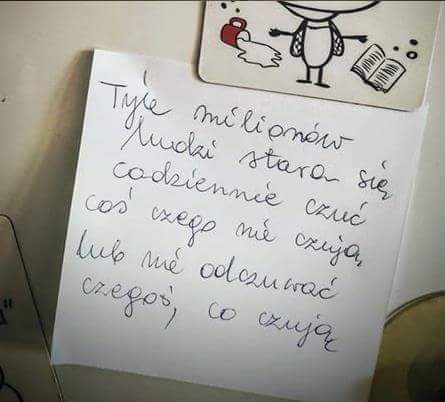 Tyle milionów
ludzi stara się
codziennie czuć
coś czego nie czują
lub nie odczuwać
czegoś, co czują